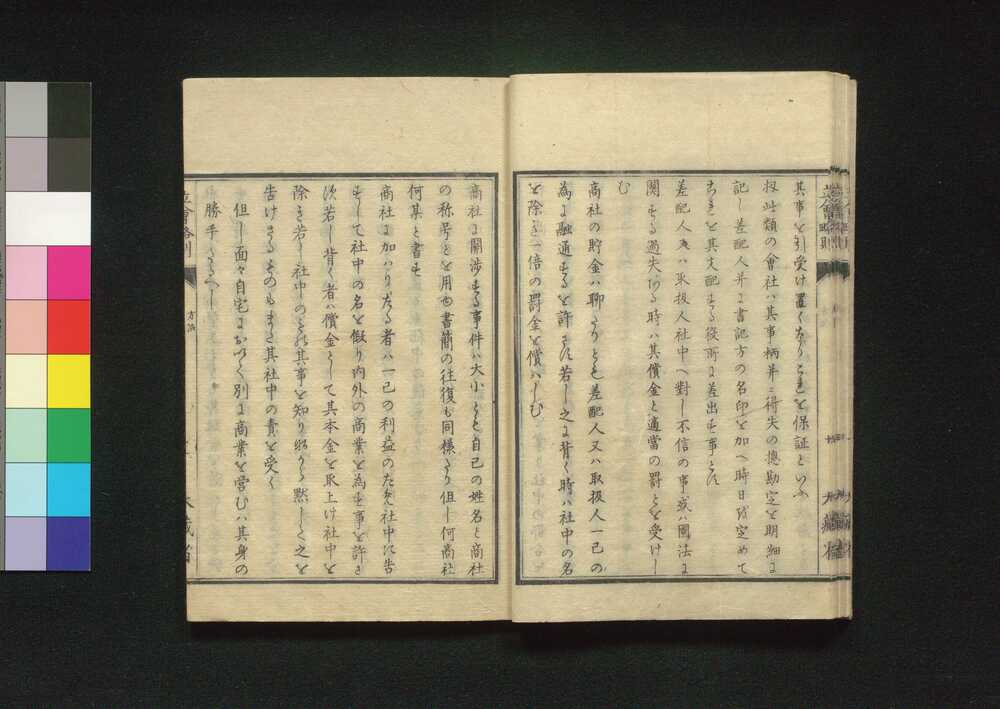 其事を引受け置くなりこれを保証といふ
扨此類の會社ハ其事柄并ニ得失の摠勘定を明細に
記し差配人并に書記方の名印を加へ時日を定めて
これを其支配する役所に差出す事とす
差配人又ハ取扱人社中へ對し不信の事或ハ國法に
関する過失ある時ハ其償金と適當の罰とを受けし
む
高社の貯金ハ聊たりとも差配人又ハ取扱人一己の
為に融通するを許さす若し之に背く時ハ社中の名
を除き一倍の罰金を償ハしむ
商社に関渉する事件ハ大小とも自己の姓名と商社
の称号とを用ゆ書簡の往復も同様たり但し何商社
何某と書す
商社に加ハりたる者ハ一己の利益のため社中に告
すして社中の名を假り内外の商業を為す事を許さ
す若し背く者ハ償金として其本金を取上け社中を
除き若し社中のもの其事を知りながら黙しく之を
告けさるものもまた其社中の責を受く
但し面々自宅において別に商業を営むハ其身の
勝手たるへし
立會略則